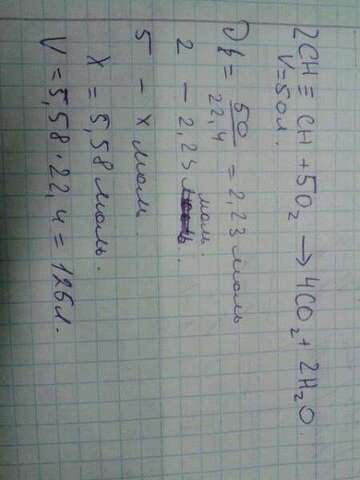 2CH≡CH + 5O₂ → 4CO₂ + 2H₂O.
V=50л.
= 50/22,4 = 2,23 моль
2 – 2,23 моль.
5 – x моль.
X = 5,58 моль.
V = 5,58·22,4 = 126л.